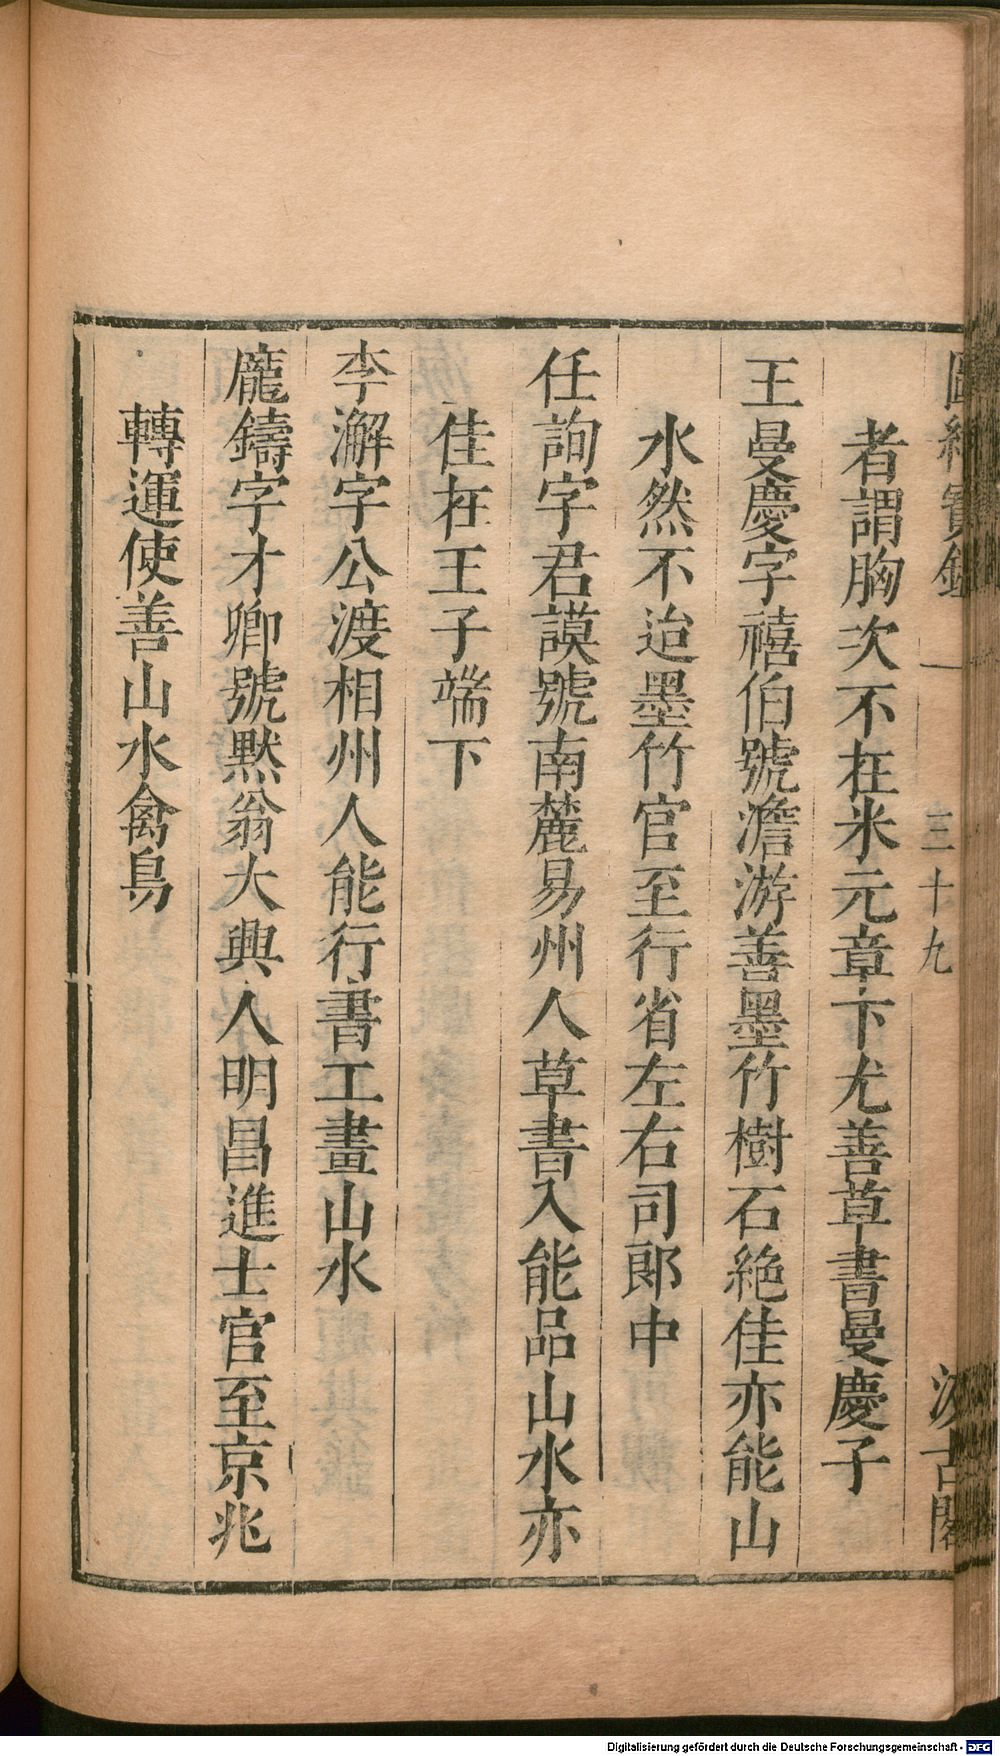 圖繪寶鑑 三十九 汲古閣
者謂胸次不在米元章下尤善草書曼慶子
王曼慶字禧伯號澹游善墨竹樹石絶佳亦能山
水然不迨墨竹官至行省左右司郎中
任詢字君謨號南麓易州人草書入能品山水亦
佳在王子端下
李澥字公渡相州人能行書工畫山水
龐鑄字才卿號黙翁大興人明昌進士官至京兆
轉運使善山水禽鳥
Digitalisierung gefördert durch die Deutsche Forschungsgemeinschaft - DFG